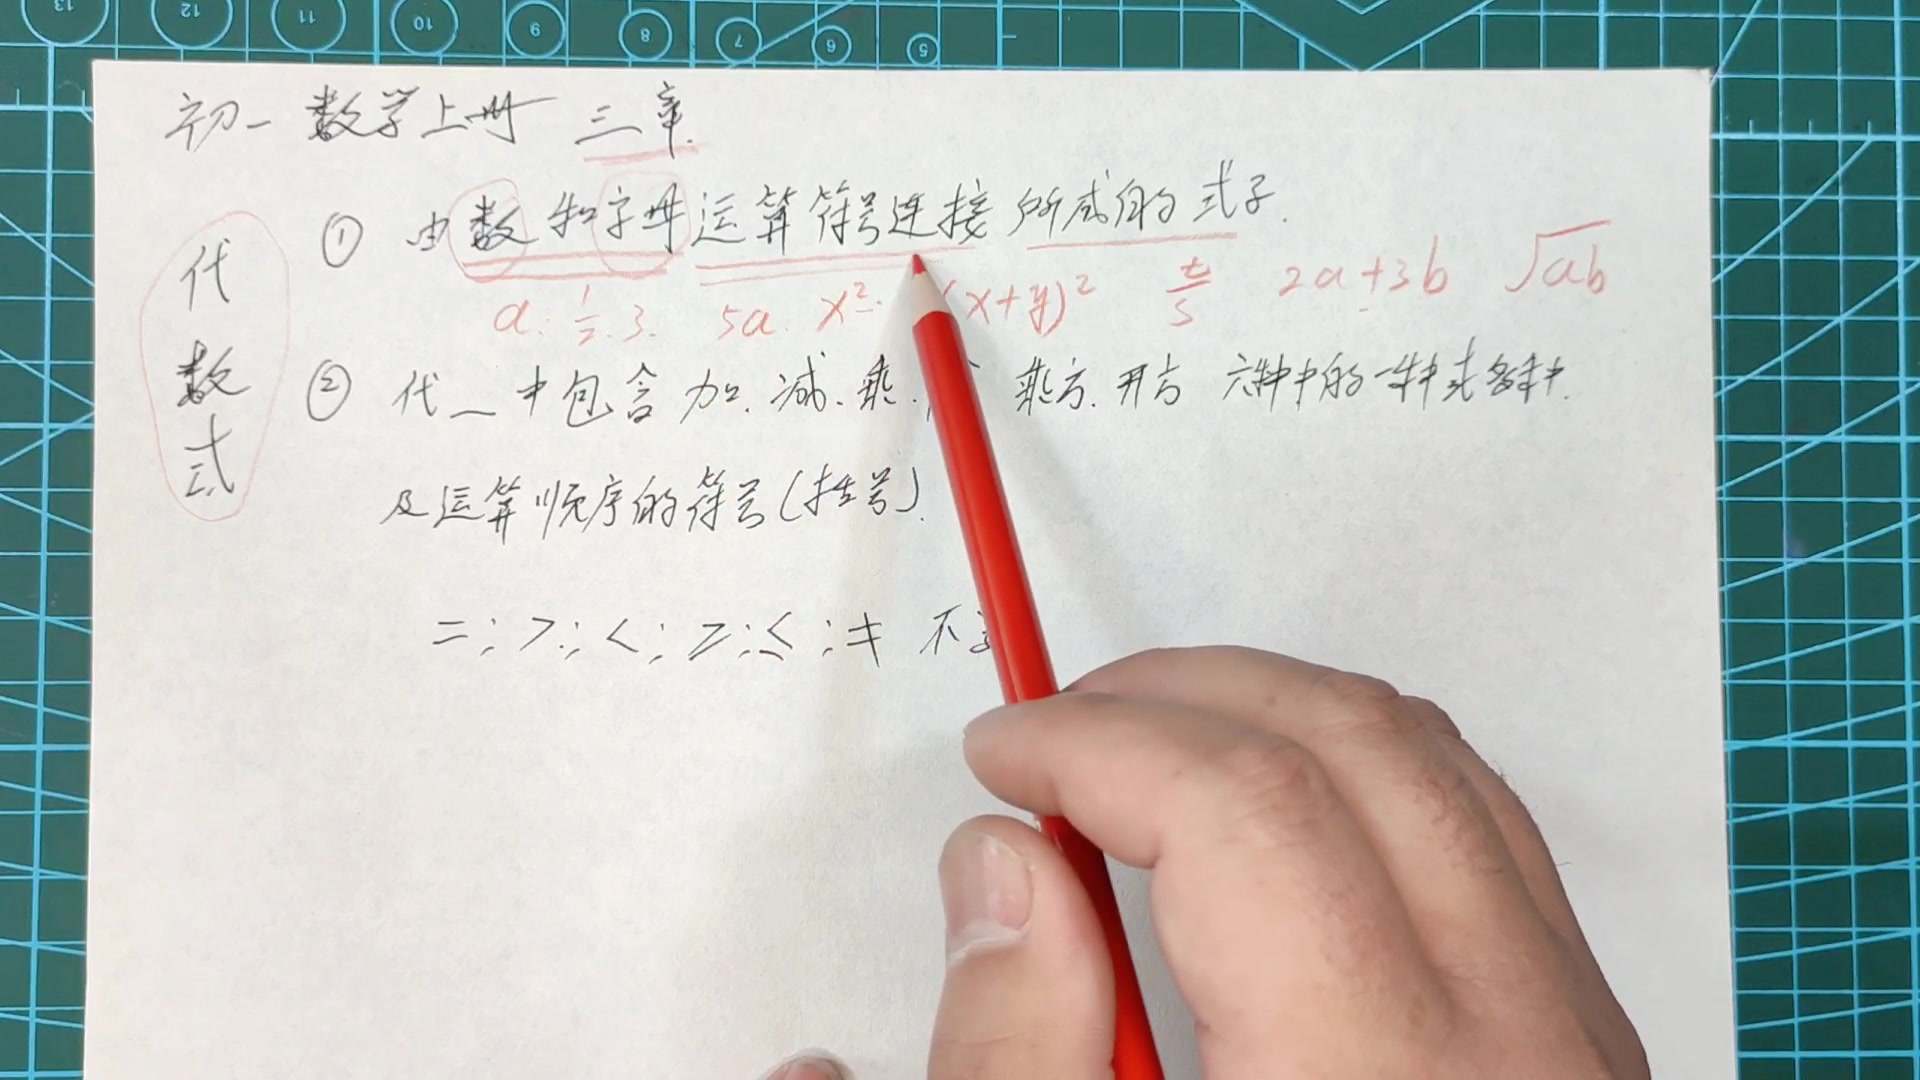 13 12 11 10 9 8 7 6 5
初一数学上册 三章.
代数式
① 由数和字母运算符号连接所成的式子.
a. 1/2. 3. 5a. x². (x+y)² t/s 2a+3b √ab
② 代一中包含加.减.乘. 乘方.开方 六种中的一种或多种.
及运算顺序的符号(括号).
=; >; <; ≥; ≤; ≠ 不